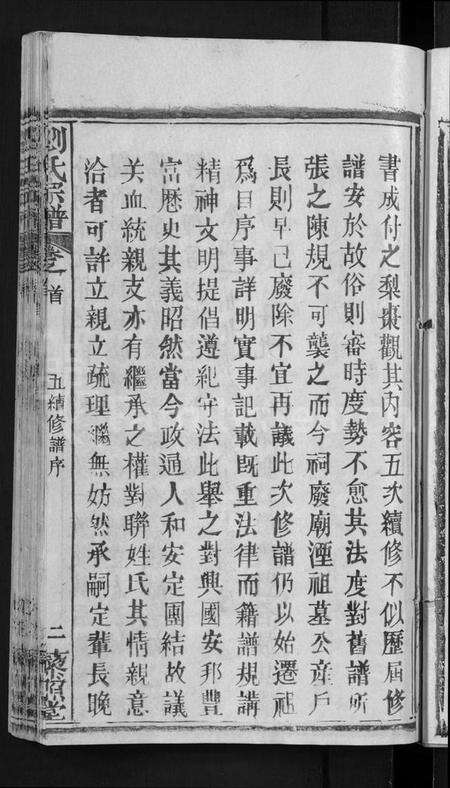 書成付之梨棗觀其內容五次續修不似歷屆修
譜安於故俗則審時度勢不愈其法度對舊譜所
張之陳規不可襲之而今祠廢廟湮祖墓公產戶
長則早已廢除不宜再議此次修譜仍以始遷祖
爲日序事詳明實事記載既重法律而籍譜規講
精神文明提倡遵紀守法此舉之對興國安邦豐
富歷史其義昭然當今政通人和安定團結故議
关血統親支亦有繼承之權對聯姓氏其情親意
洽者可許立親立疏理繼無妨然承嗣定輩長晚
劉氏宗譜
卷之首
五續修譜序
二
堂